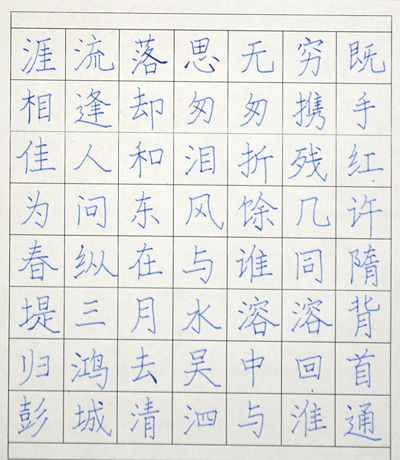 涯流落思无穷既
相逢却匆匆携手
佳人和泪折残红
为问东风馀几许
春纵在与谁同隋
堤三月水溶溶背
归鸿去吴中回首
彭城清泗与淮通